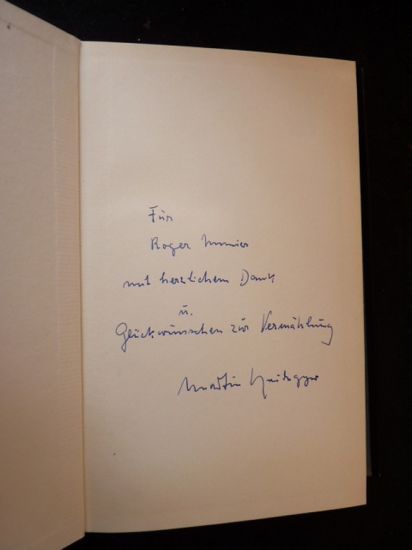 Für
Roger Munier
mit herzlichem Dank
u.
Glückwünschen zur Vermählung
Martin Heidegger